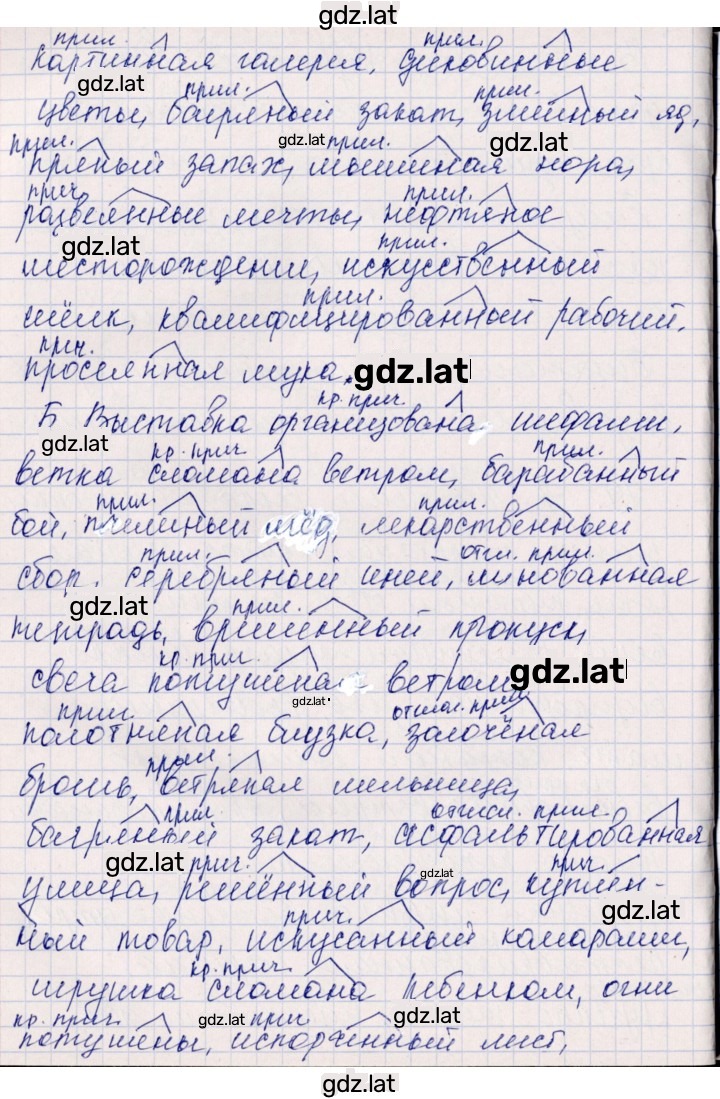 gdz.lat
прил. прил.
картинная галерея, диковинные
gdz.lat прил. прил.
цветы, багряный закат, змеиный яд,
прил. gdz.lat прил. gdz.lat
пряный запах, мышиная нора,
прич. прил.
развеянные мечты, нефтяное
gdz.lat прил.
месторождение, искусственный
прил.
шёлк, квалифицированный рабочий,
прич.
просеянная мука. gdz.lat
кр. прич.
Б Выставка организована шефами,
gdz.lat кр. прич. прил.
ветка сломана ветром, барабанный
прил. прил.
бой, пчелиный мёд, лекарственный
прил. отгл. прил.
сбор. серебряный иней, линованная
gdz.lat прил.
тетрадь, временный пропуск,
кр. прич.
свеча потушена ветром gdz.lat
gdz.lat
прил. отглаг. прил.
полотняная блузка, золочёная
прил.
брошь, ветряная мельница,
прил. отглаг. прил.
багряный закат, асфальтированная
gdz.lat прич. gdz.lat прич.
улица, решённый вопрос, куплен-
прич. gdz.lat
ный товар, искусанный комарами,
кр. прич.
игрушка сломана ребенком, огни
кр. прич. gdz.lat прич. gdz.lat
потушены, испорченный лист,
gdz.lat